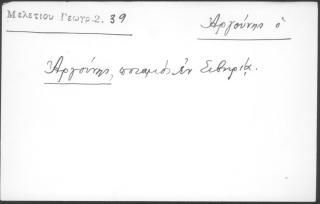 Μελετίου Γεωγρ. 2. 39
Ἀργούνης ὁ
Ἀργούνης, ποταμὸς ἐν Σιβηρίᾳ.